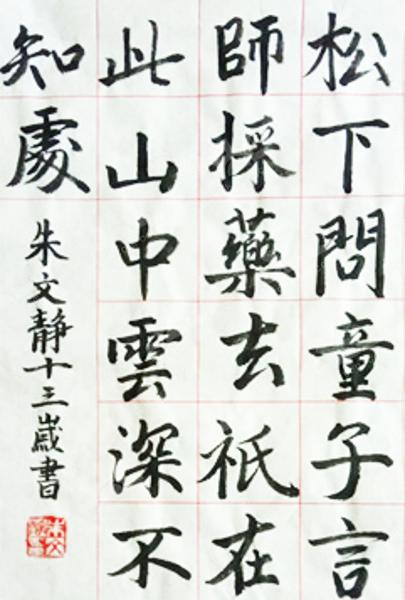 松下問童子言
師採藥去祇在
此山中雲深不
知處
朱文靜十三歲書